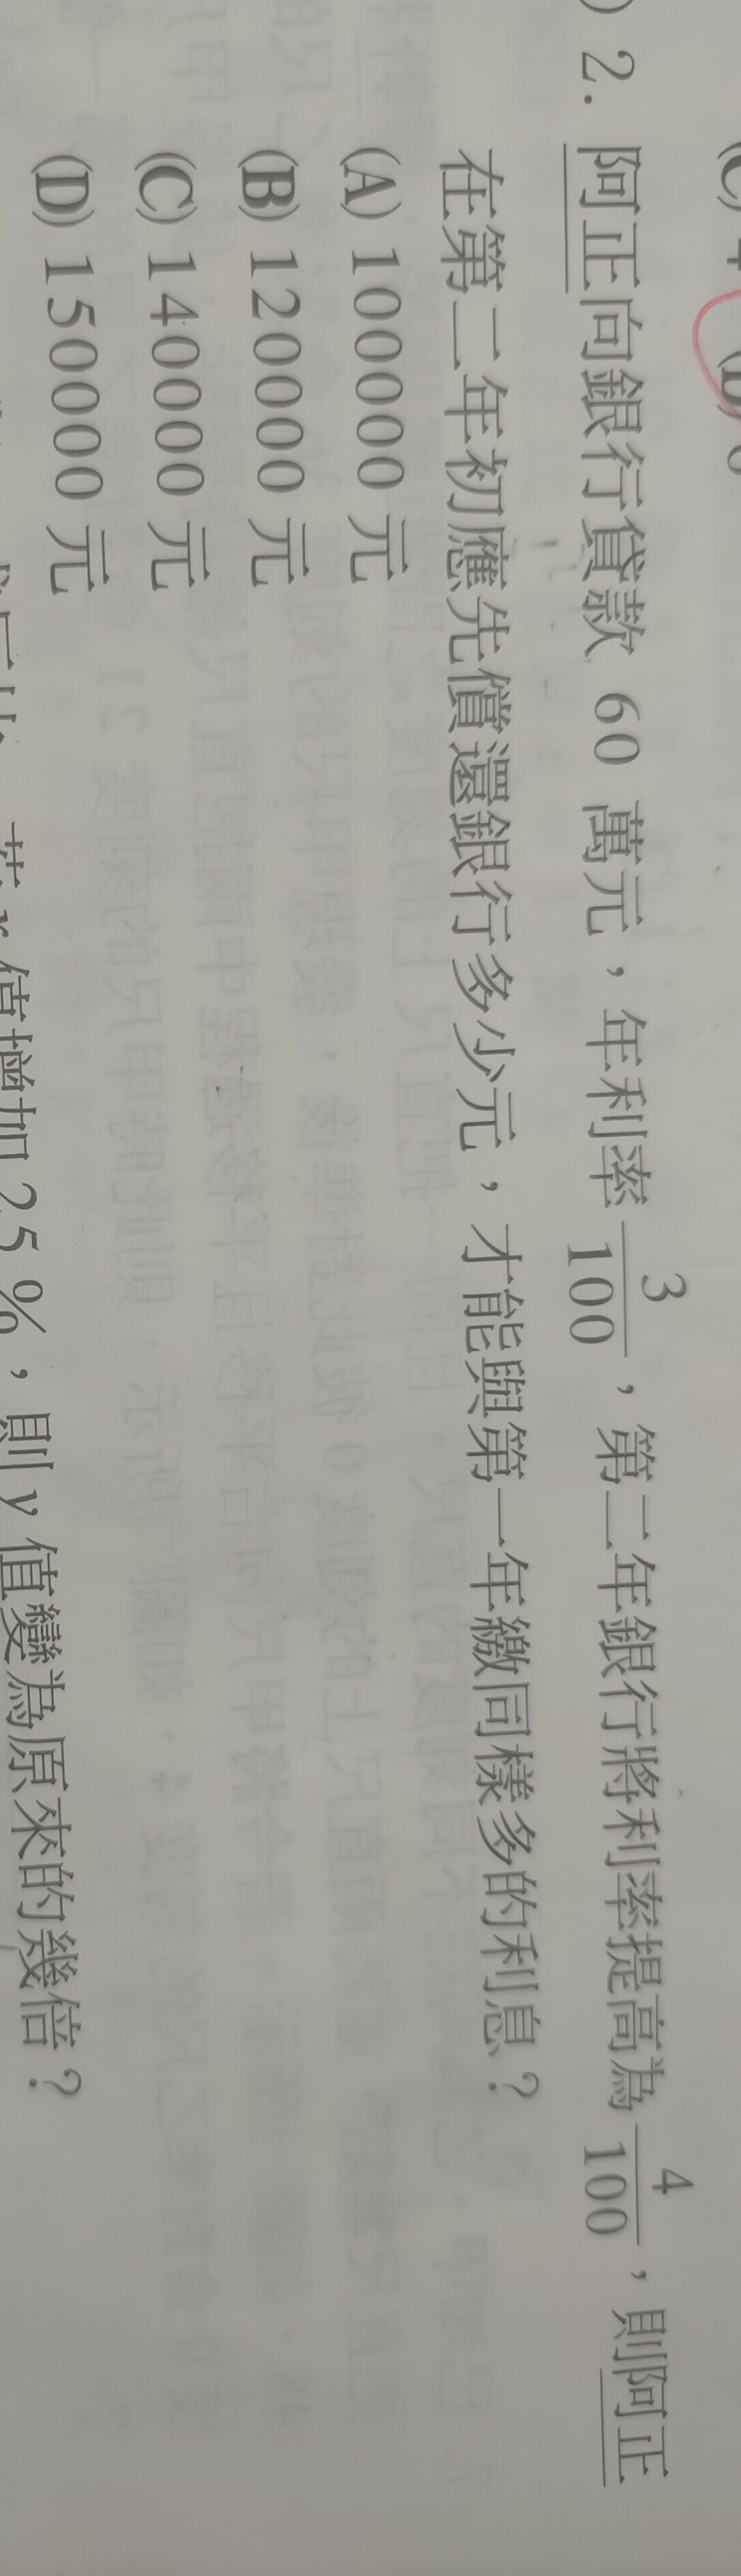 2. 阿正向銀行貸款 60 萬元，年利率 3/100，第二年銀行將利率提高為 4/100，則阿正
在第二年初應先償還銀行多少元，才能與第一年繳同樣多的利息？
(A) 100000 元
(B) 120000 元
(C) 140000 元
(D) 150000 元
值增加 25 %，則 y 值變為原來的幾倍？